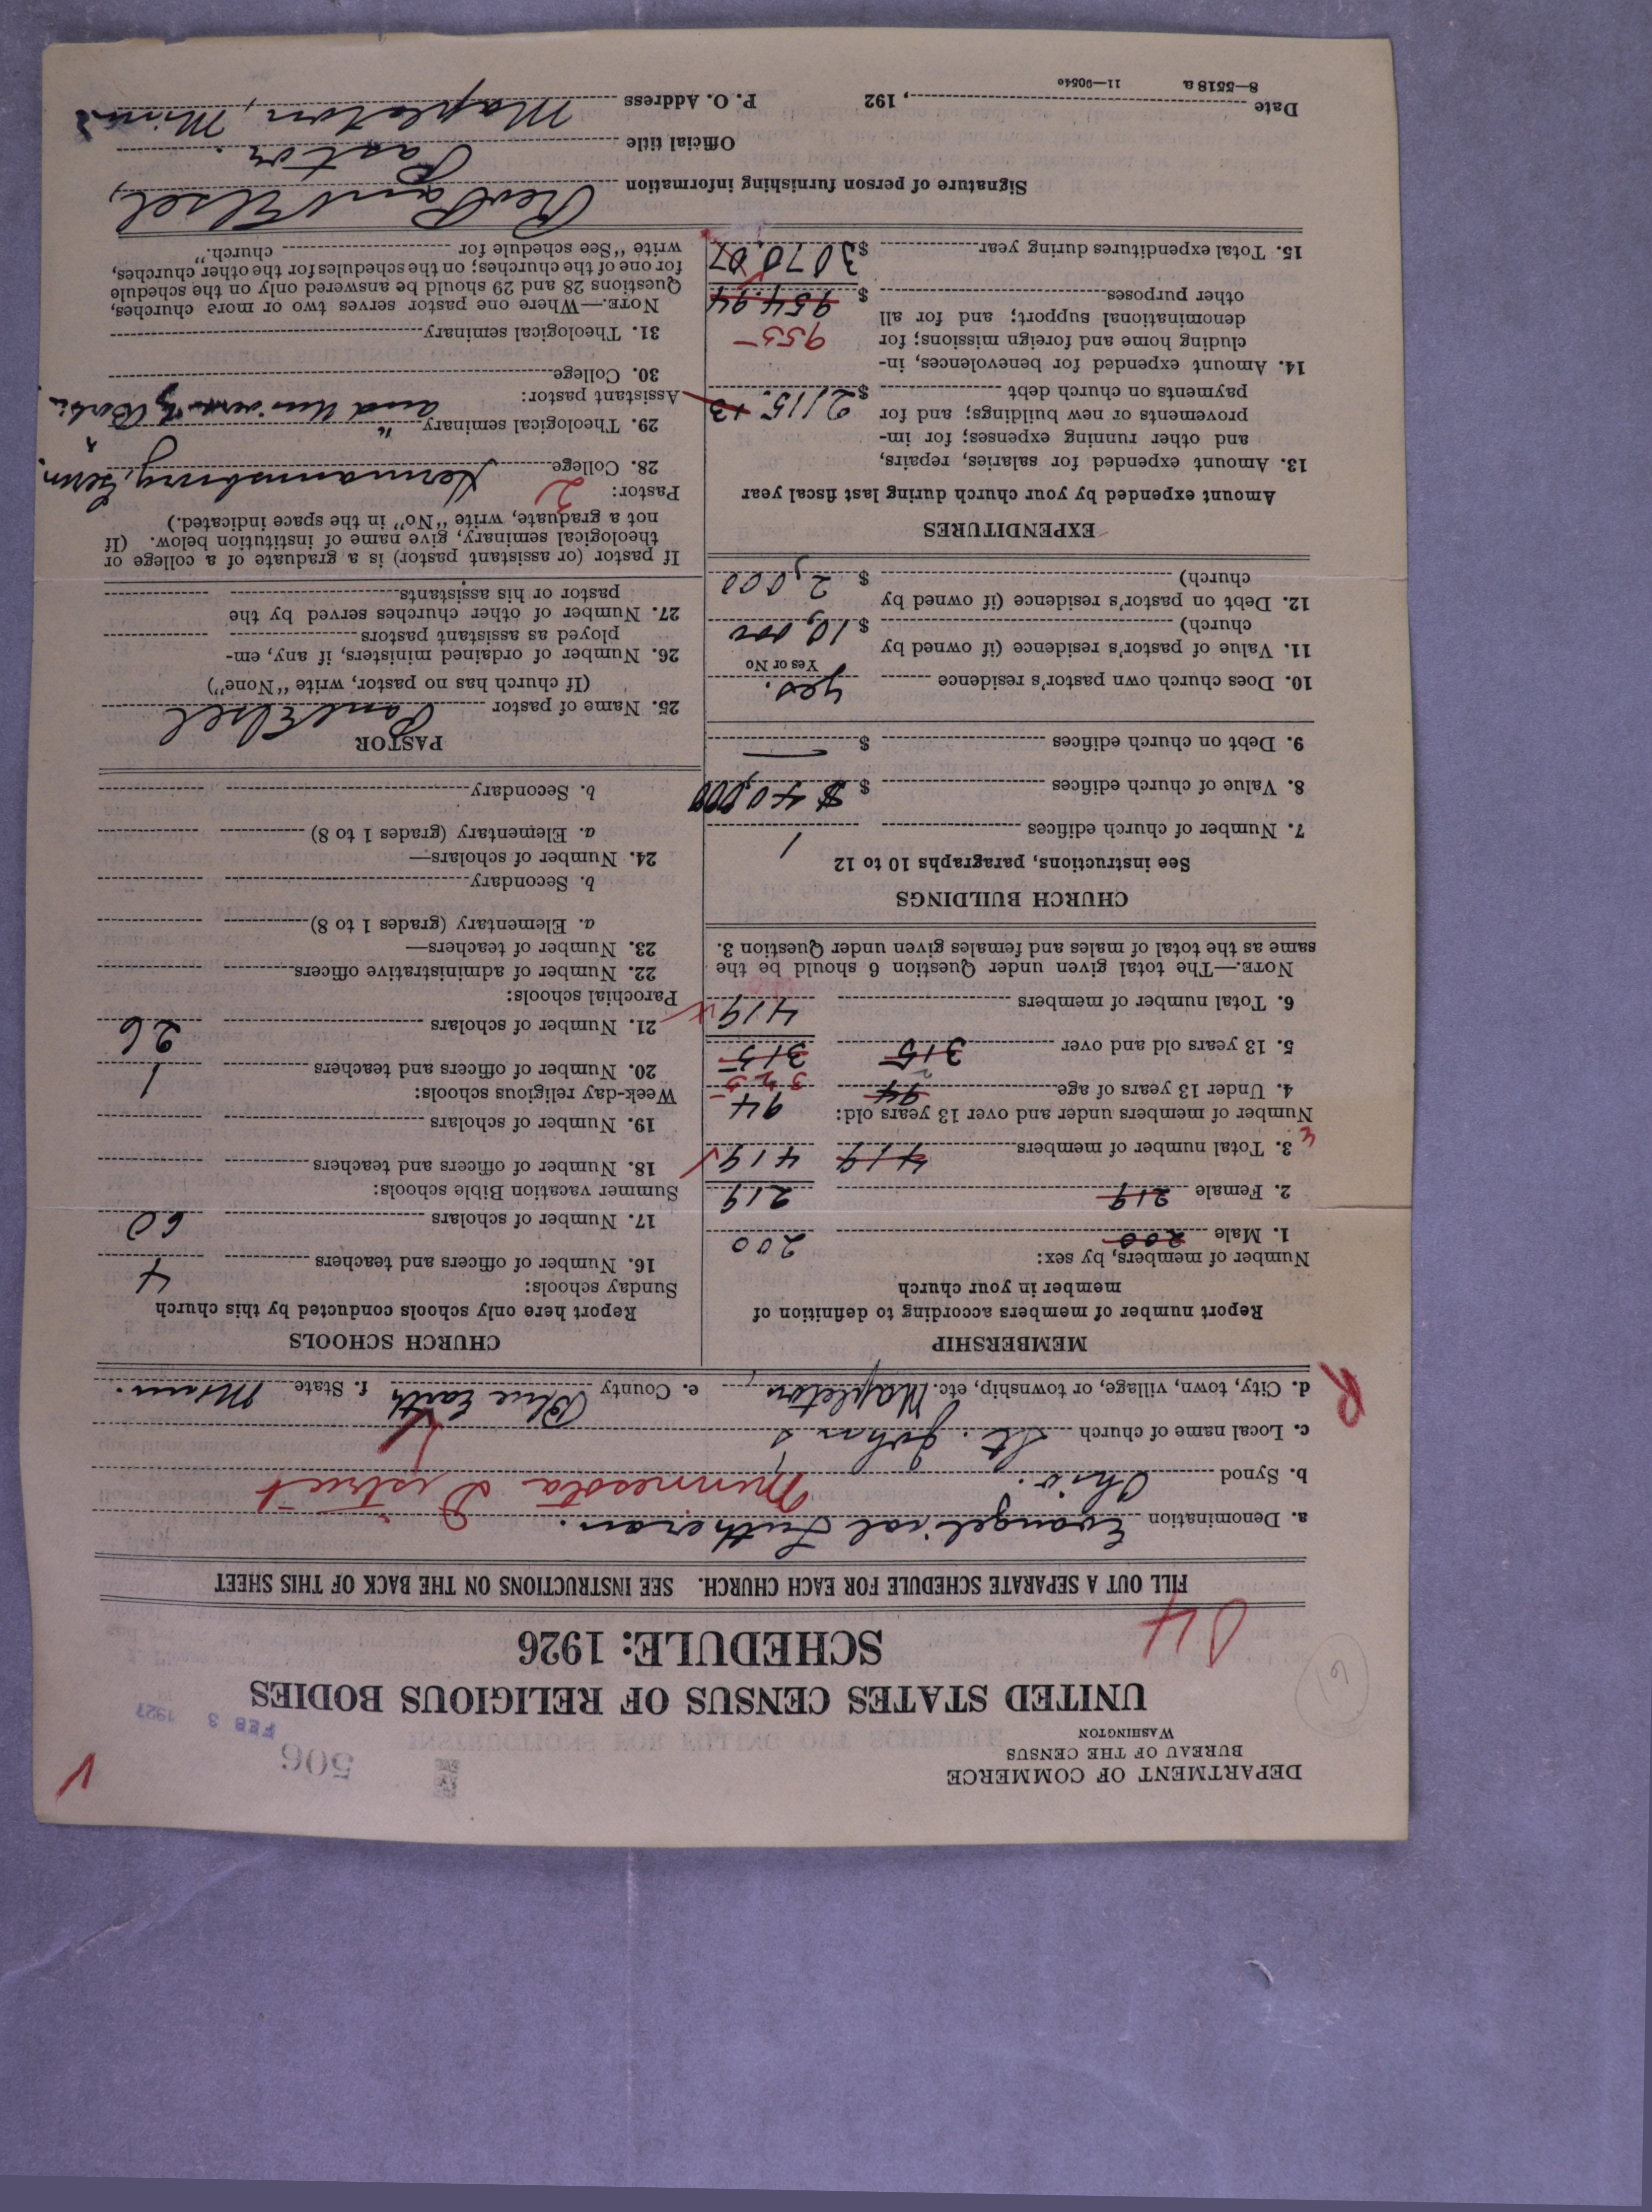 DEPARTMENT OF COMMERCE
BUREAU OF THE CENSUS
WASHINGTON
506
FEB 3 1927
UNITED STATES CENSUS OF RELIGIOUS BODIES
SCHEDULE: 1926
FILL OUT A SEPARATE SCHEDULE FOR EACH CHURCH. SEE INSTRUCTIONS ON THE BACK OF THIS SHEET
a. Denomination Evangelical Lutheran.
b. Synod Ohio. Minnesota District
c. Local name of church St. John's
d. City, town, village, or township, etc. Mapleton, e. County Blue Earth f. State Minn.
R
MEMBERSHIP
Report number of members according to definition of
member in your church
Number of members, by sex:
1. Male 200 200
2. Female 219 219
3. Total number of members 419 419
Number of members under and over 13 years old:
4. Under 13 years of age 94 94
325
5. 13 years old and over 315 315
6. Total number of members 419
NOTE.—The total given under Question 6 should be the
same as the total of males and females given under Question 3.
CHURCH BUILDINGS
See instructions, paragraphs 10 to 12
7. Number of church edifices 1
8. Value of church edifices $ $40,000
9. Debt on church edifices $ —
10. Does church own pastor's residence yes.
Yes or No
11. Value of pastor's residence (if owned by
church) $ 10,000
12. Debt on pastor's residence (if owned by
church) $ 2,000
EXPENDITURES
Amount expended by your church during last fiscal year
13. Amount expended for salaries, repairs,
and other running expenses; for im-
provements or new buildings; and for
payments on church debt $ 2115.13
14. Amount expended for benevolences, in-
cluding home and foreign missions; for 955
denominational support; and for all
other purposes $ 954.94
15. Total expenditures during year $ 3070.07
CHURCH SCHOOLS
Report here only schools conducted by this church
Sunday schools:
16. Number of officers and teachers 4
17. Number of scholars 60
Summer vacation Bible schools:
18. Number of officers and teachers
19. Number of scholars
Week-day religious schools:
20. Number of officers and teachers 1
21. Number of scholars 26
Parochial schools:
22. Number of administrative officers
23. Number of teachers—
a. Elementary (grades 1 to 8)
b. Secondary
24. Number of scholars—
a. Elementary (grades 1 to 8)
b. Secondary
PASTOR
25. Name of pastor Paul Elsel
(If church has no pastor, write "None")
26. Number of ordained ministers, if any, em-
ployed as assistant pastors
27. Number of other churches served by the
pastor or his assistants
If pastor (or assistant pastor) is a graduate of a college or
theological seminary, give name of institution below. (If
not a graduate, write "No" in the space indicated.)
Pastor: 2
28. College Hermannsburg, Germ.
29. Theological seminary " and University
Assistant pastor:
30. College
31. Theological seminary
NOTE.—Where one pastor serves two or more churches,
Questions 28 and 29 should be answered only on the schedule
for one of the churches; on the schedules for the other churches,
write "See schedule for church."
Signature of person furnishing information Rev Paul Elsel,
Official title Pastor.
Date , 192 P. O. Address Mapleton, Minn
8—5518 a 11—9054c